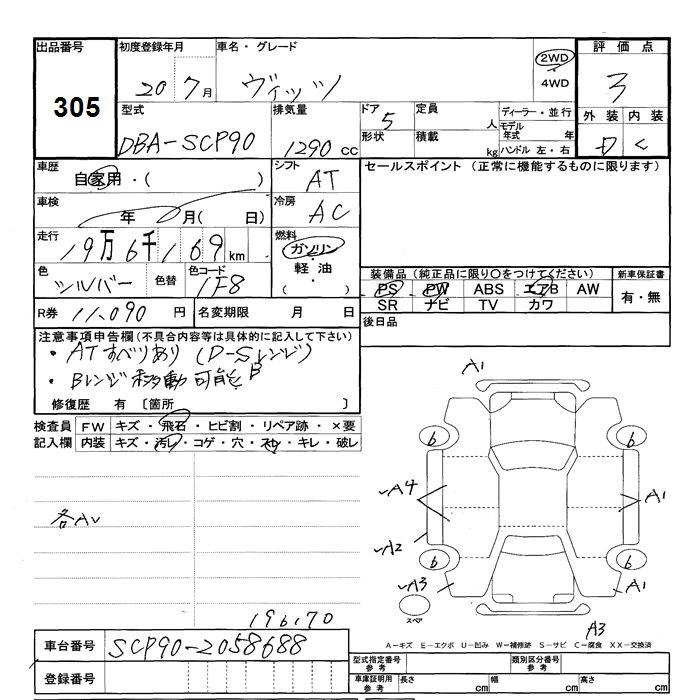 出品番号 初度登録年月 車名・グレード 評価点
305 20 7月 ヴィッツ 2WD 3
4WD
型式 排気量 ドア 定員 ディーラー・並行 外装 内装
DBA-SCP90 1290cc 5 人 モデル年式 年 D C
形状 積載 kg ハンドル 左・右
車歴 シフト セールスポイント (正常に機能するものに限ります)
自家用・( ) AT
車検 冷房
年 月( 日) AC
走行 燃料
19万6千169km ガソリン
色 色替 色コード 軽油 装備品 (純正品に限り○をつけてください) 新車保証書
シルバー 1F8 ( ) PS PW ABS エアB AW 有・無
SR ナビ TV カワ
R券 11,090円 名変期限 月 日 後日品
注意事項申告欄(不具合内容等は具体的に記入して下さい)
・ATすべりあり (D-Sレンジ)
・Bレンジ移動可能 B
修復歴 有 〔箇所 〕
検査員 FW キズ・飛石・ヒビ割・リペア跡・×要
記入欄 内装 キズ・汚レ・コゲ・穴・スレ・キレ・破レ
A1
6 6
A4 A1
各AU
A2
6 6
A3 A1
スペア
196170 A3
A-キズ E-エクボ U-凹み W-補修跡 S-サビ C-腐食 XX-交換済
車台番号 SCP90-2058688
型式指定番号 参考 類別区分番号 参考
登録番号 車庫証明用 参考 長さ cm 幅 cm 高さ cm